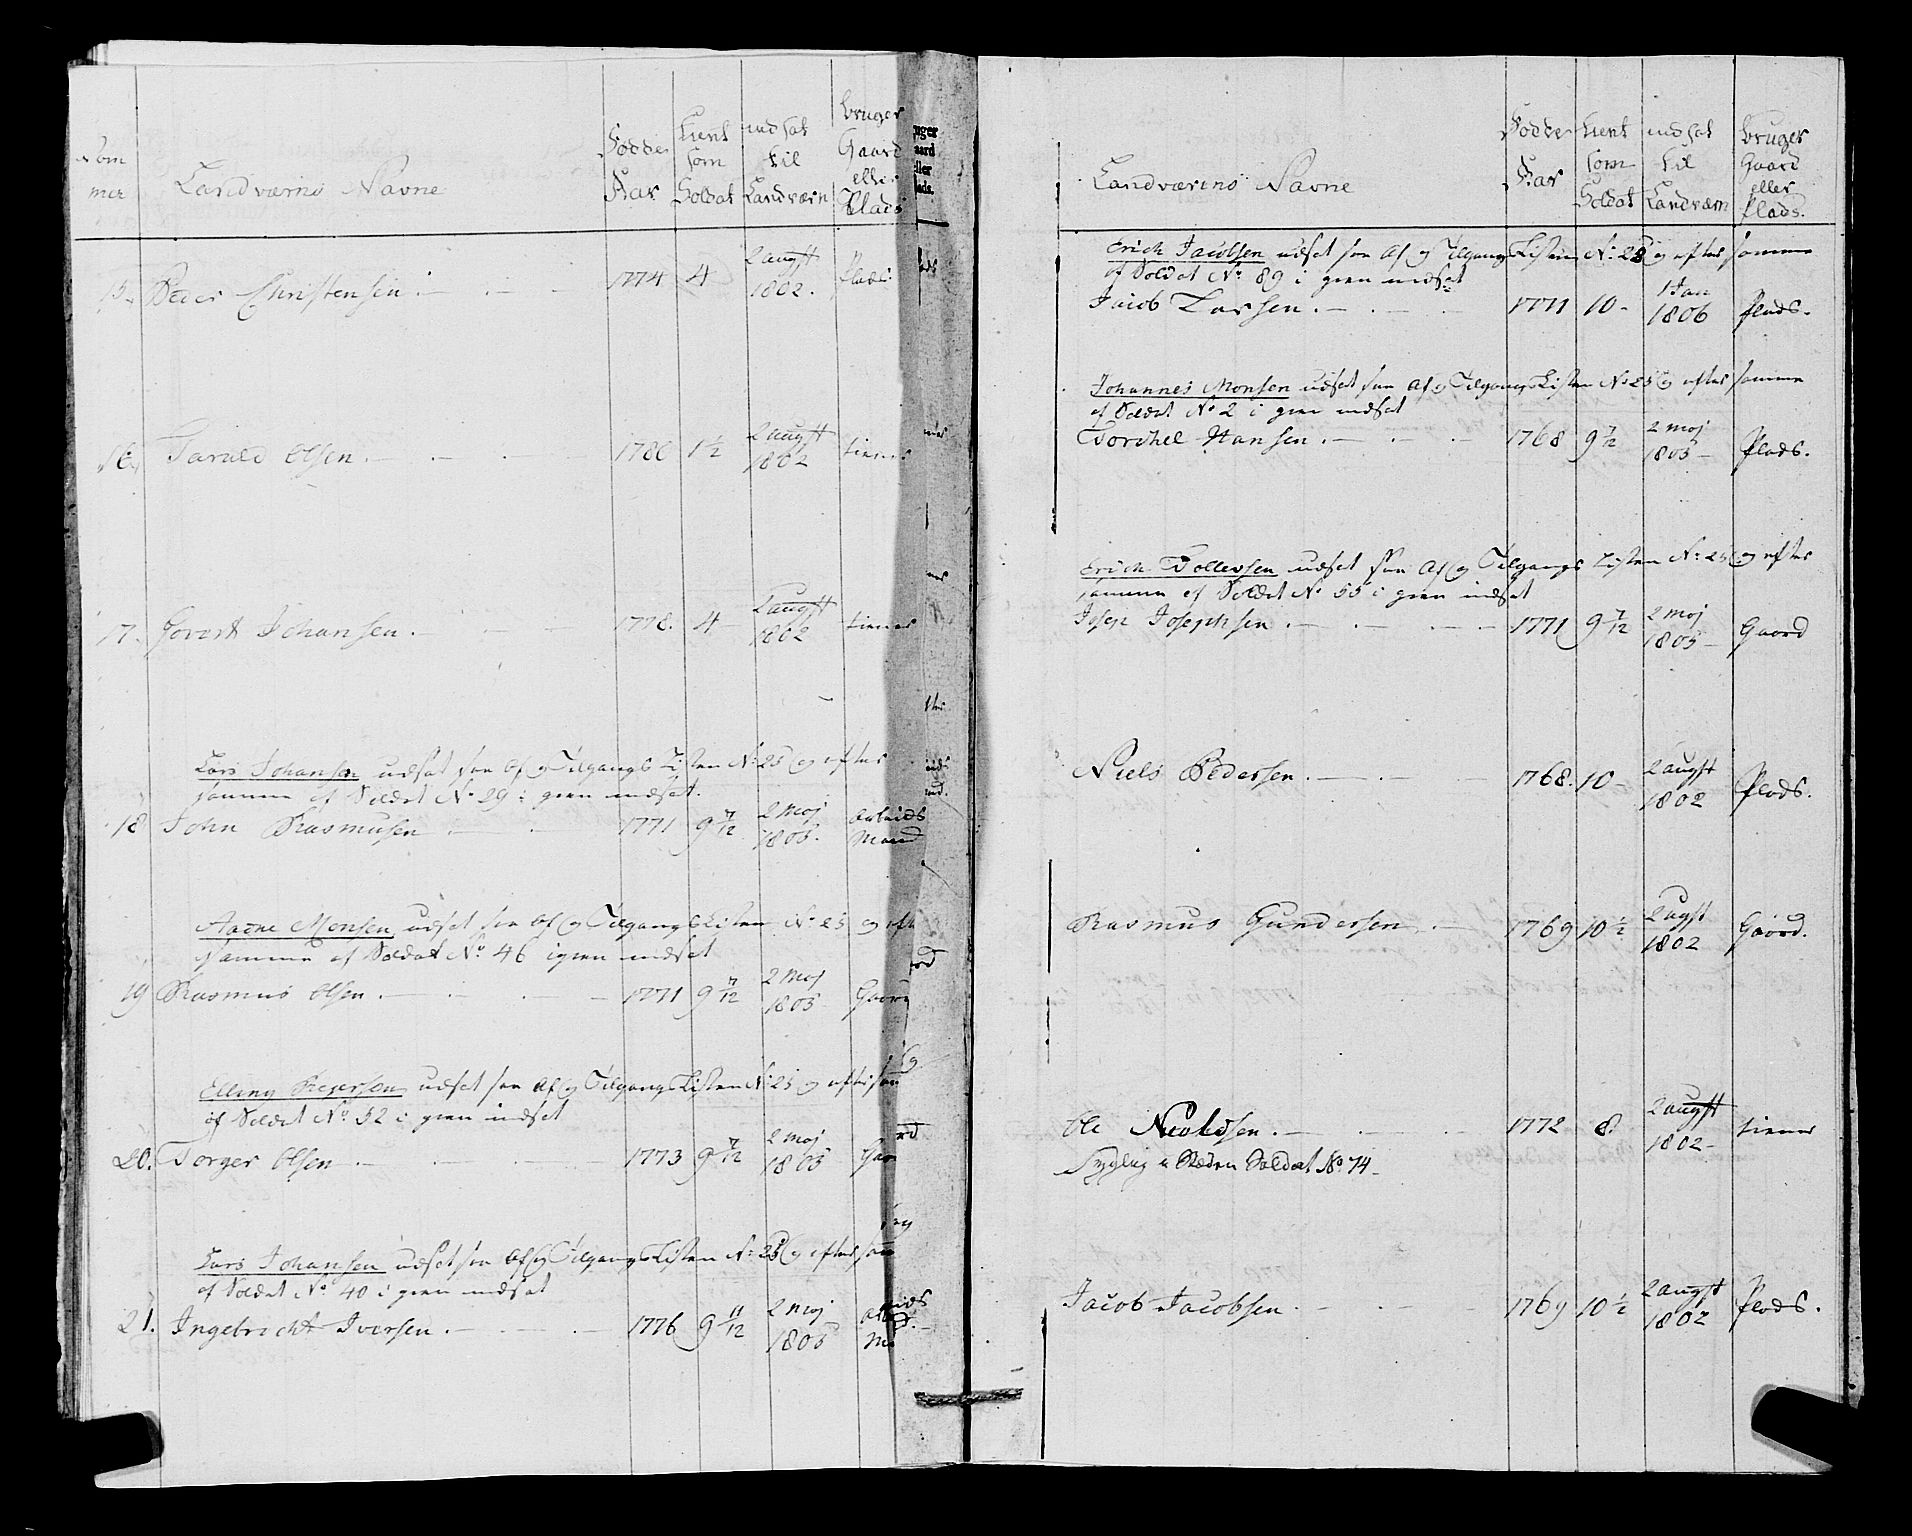 Nom
mer
Landværns Navne
Fødde
Aar
tient
som
Soldat
indsat
til
Landværn
bruger
Gaard
eller
Plads
15. Peder Christensen 1774 4 2 augst 1802. Plads
16. Taruld Olsen 1780 1½ 2 augst 1802 tiener
17. Govert Johansen 1778. 4 2 augst 1802 tiener
Lars Johansen udsat see Af og Tilgangs Listen No 25 og efter
samme af Soldat No 29 i gien indsat.
18 John Rasmusen 1771 9 7/12 2 Maj 1805. Arbeids Mand
Aadne Monsen udsat see Af og Tilgangs Listen No 25 og eft
samme af Soldat No 46 igien indsat
19 Rasmus Olsen 1771 9 7/12 2 Maj 1805 Gaard
Elling udsat see Af og Tilgangs Listen No 25 og efter sam
af Soldat No 52 i gien indsat
20. Torger Olsen 1773 9 7/12 2 maj 1805 Gaar
Lars Johansen udsat see Af og Tilgangs Listen No 25 og efter sam
af Soldat No 40 i gien indsat
21. Ingebricht Iversen 1776 9 11/12 2 Maj 1805
Landværns Navne
Fødde
Aar
tient
som
Soldat
indsat
til
Landværn
bruger
Gaard
eller
Plads.
Erich Jacobsen udsat see Af og Tilgangs Listen No 28 og efter samme
af Soldat No 89 i gien indsat
Jacob Larsen. 1771 10 1 Jan 1806 Plads.
Johannes Monsen udsat see Af og Tilgangs Listen No 25 og efter samme
af Soldat No 2 i gien indsat
Torchel Hansen. 1768 9 7/12 2 Maj 1805 Plads.
Erich Tollevsen udsat see Af og Tilgangs Listen No 25 og efter
samme af Soldat No 55 i gien indsat
Josep Josephsen 1771 9 7/12 2 Maj 1805 Gaard
Niels Pedersen 1768. 10 2 augst 1802 Plads.
Rasmus Gundersen 1769 10½ 2 augst 1802 Gaard.
Ole 1772 8. 2 augst 1802 tiener
Soldat No 74
Jacob Jacobsen 1769 10½ 2 augst 1802 Plads.